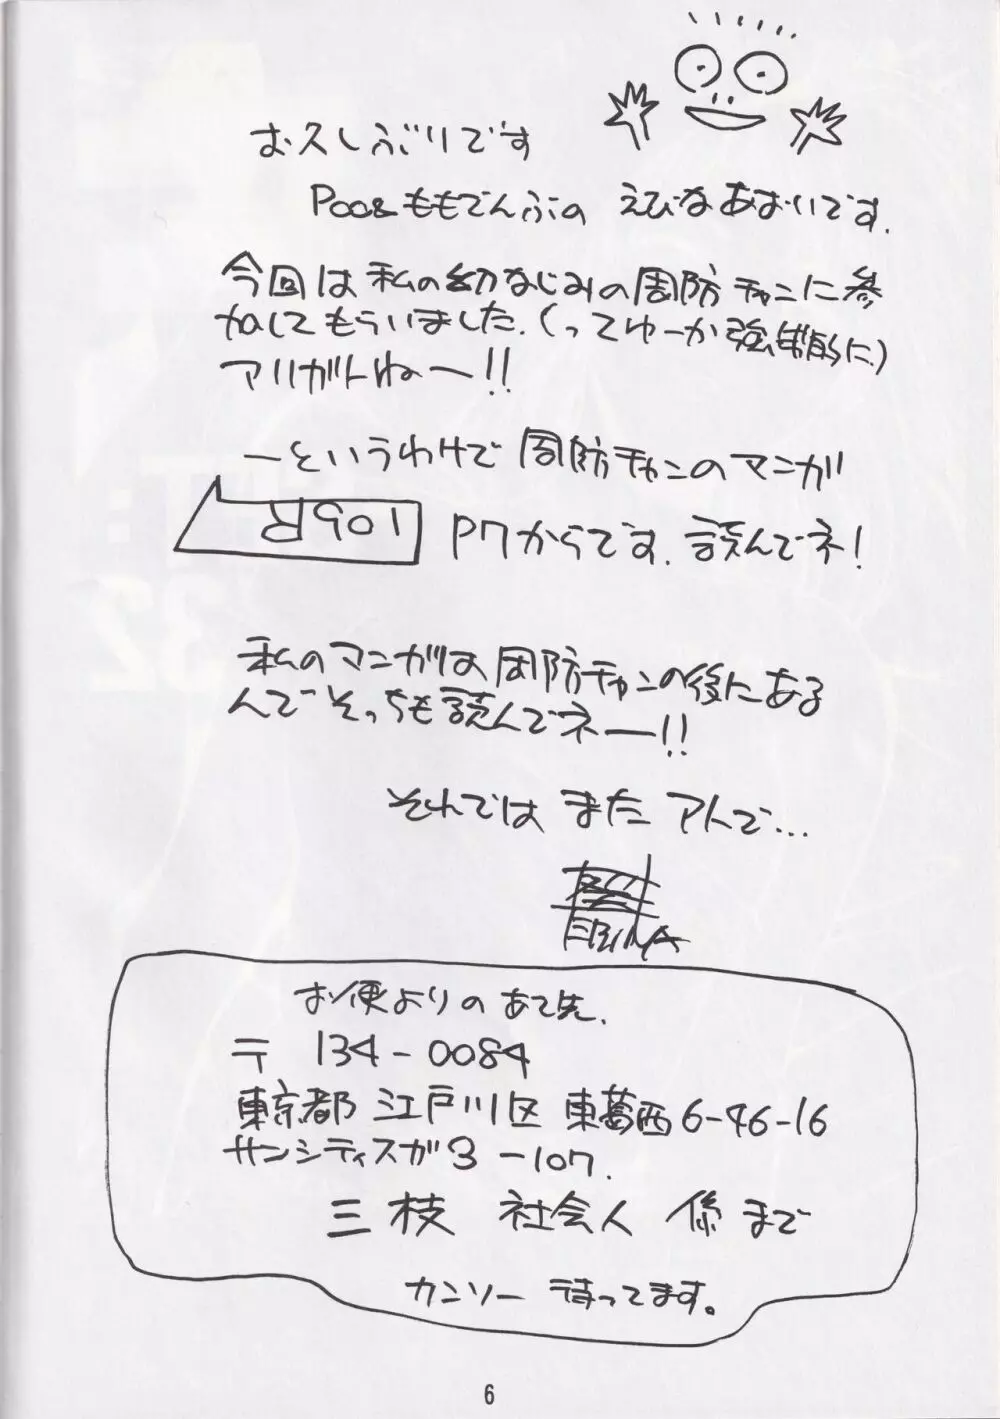 お久しぶりです
Poo&ももでんぶの えびなあおいです.
今回は私の幼なじみの周防チャンに参
加してもらいました.(ってゆーか強制的に)
アリガトねー!!
ーというわけで 周防チャンのマンガ
P7からです. 読んでネ!
私のマンガは周防チャンの後にある
んでそっちも読んでネー!!
それでは また アトで...
EBINA
お便よりの あて先.
〒 134-0084
東京都 江戸川区 東葛西6-46-16
サンシティスガ3 -107.
三枝 社会人 係まで
カンソー 待ってます。
6